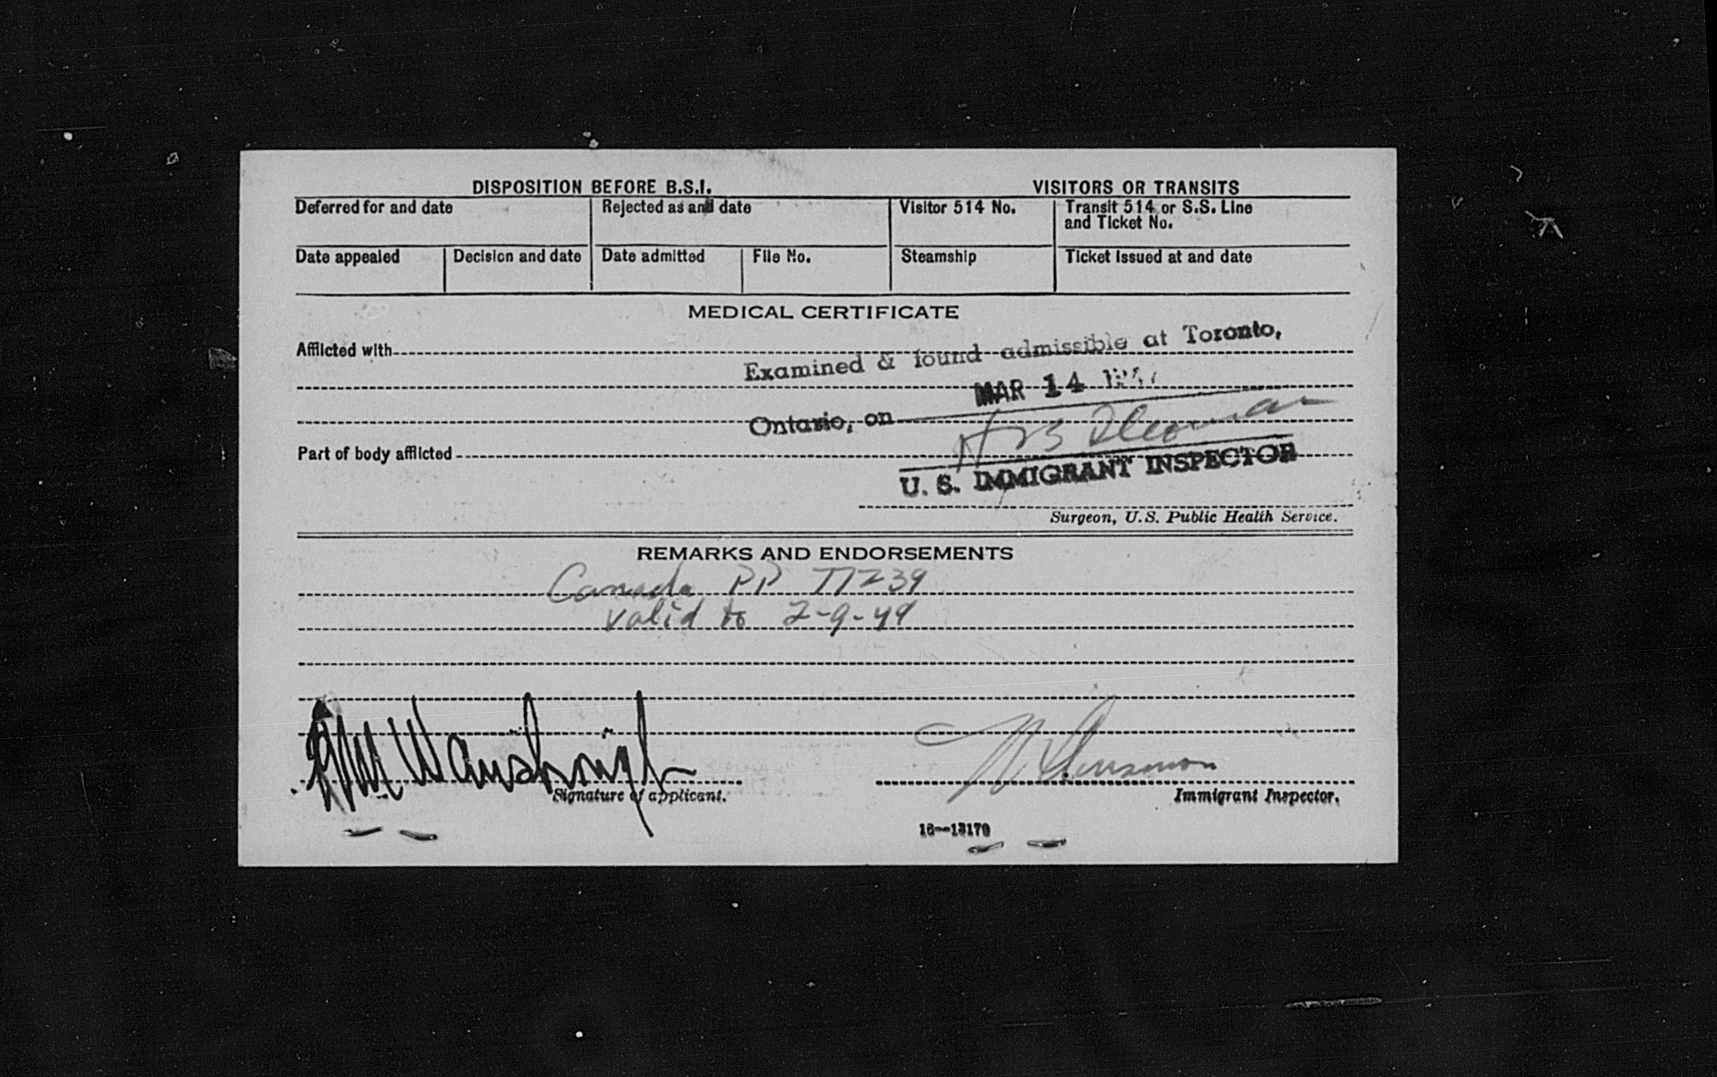 DISPOSITION BEFORE B.S.I. VISITORS OR TRANSITS
Deferred for and date Rejected as and date Visitor 514 No. Transit 514 or S.S. Line
and Ticket No.
Date appealed Decision and date Date admitted File No. Steamship Ticket issued at and date
MEDICAL CERTIFICATE
Afflicted with
Examined & found admissible at Toronto,
MAR 14
Ontario, on
Part of body afflicted
U. S. IMMIGRANT INSPECTOR
Surgeon, U.S. Public Health Service.
REMARKS AND ENDORSEMENTS
Canada PP 77239
valid to 2-9-49
Wainbrigh
Signature of applicant. Immigrant Inspector.
16-13170